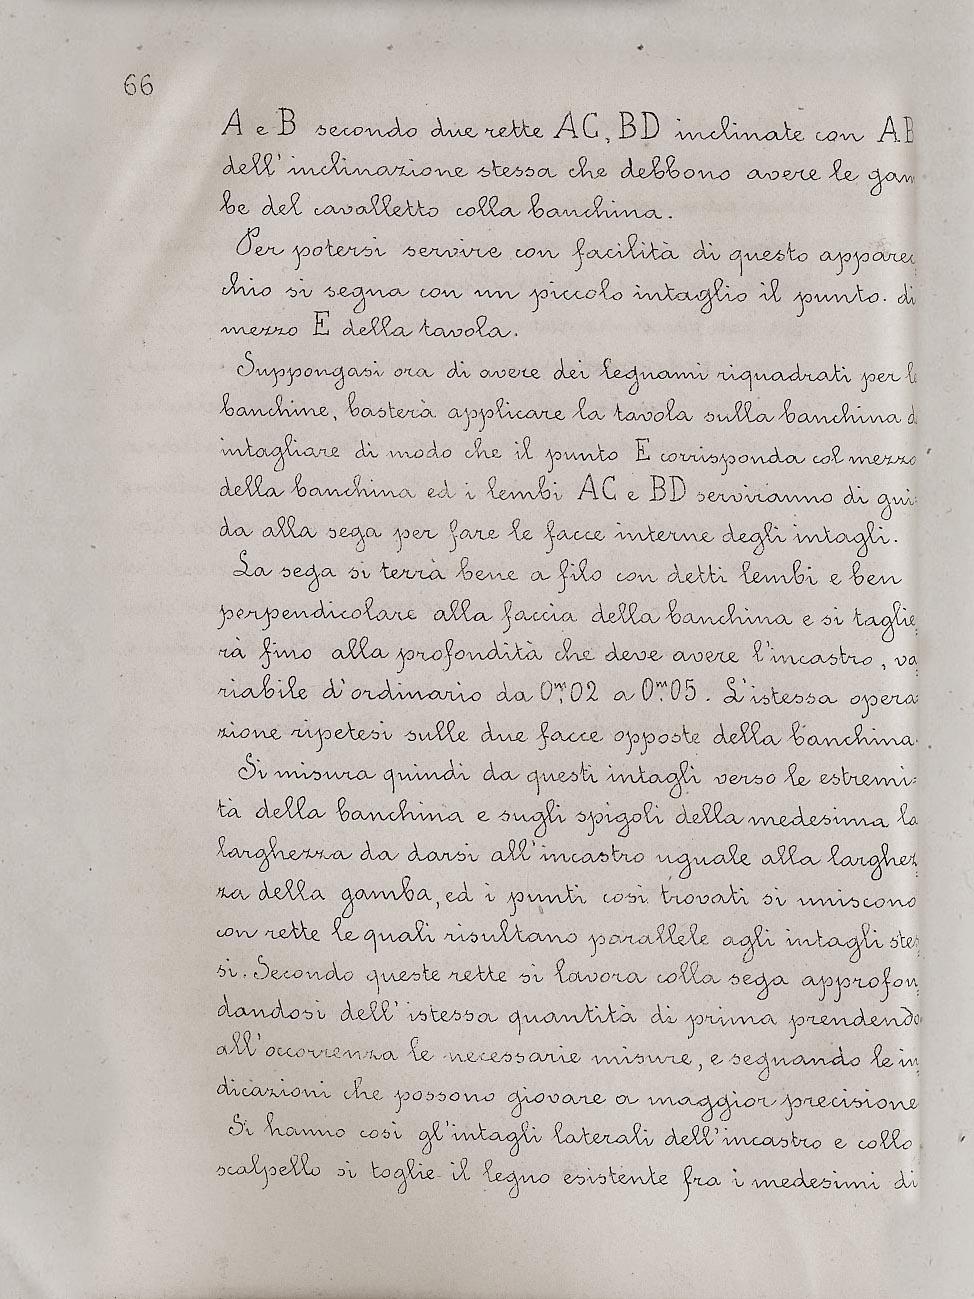 66
A e B secondo due rette AC, BD inclinate con AB
dell'inclinazione stessa che debbono avere le gam
be del cavalletto colla banchina.
Per potersi servire con facilità di questo apparec
chio si segna con un piccolo intaglio il punto di
mezzo E della tavola.
Suppongasi ora di avere dei legnami riquadrati per le
banchine, basterà applicare la tavola sulla banchina d
intagliare di modo che il punto E corrisponda col mezzo
della banchina ed i lembi AC e BD serviranno di gui:
da alla sega per fare le facce interne degli intagli.
La sega si terrà bene a filo con detti lembi e ben
perpendicolare alla faccia della banchina e si taglie
rà fino alla profondità che deve avere l'incastro, va
riabile d'ordinario da 0,ᵐ02 a 0,ᵐ05. L'istessa opera
zione ripetesi sulle due facce opposte della banchina.
Si misura quindi da questi intagli verso le estremi:
tà della banchina e sugli spigoli della medesima la
larghezza da darsi all'incastro uguale alla larghez
za della gamba, ed i punti così trovati si uniscono
con rette le quali risultano parallele agli intagli stes
si. Secondo queste rette si lavora colla sega approfon
dandosi dell'istessa quantità di prima prendendo
all'occorrenza le necessarie misure, e segnando le in
dicazioni che possono giovare a maggior precisione
Si hanno così gl'intagli laterali dell'incastro e collo
scalpello si toglie il legno esistente fra i medesimi di